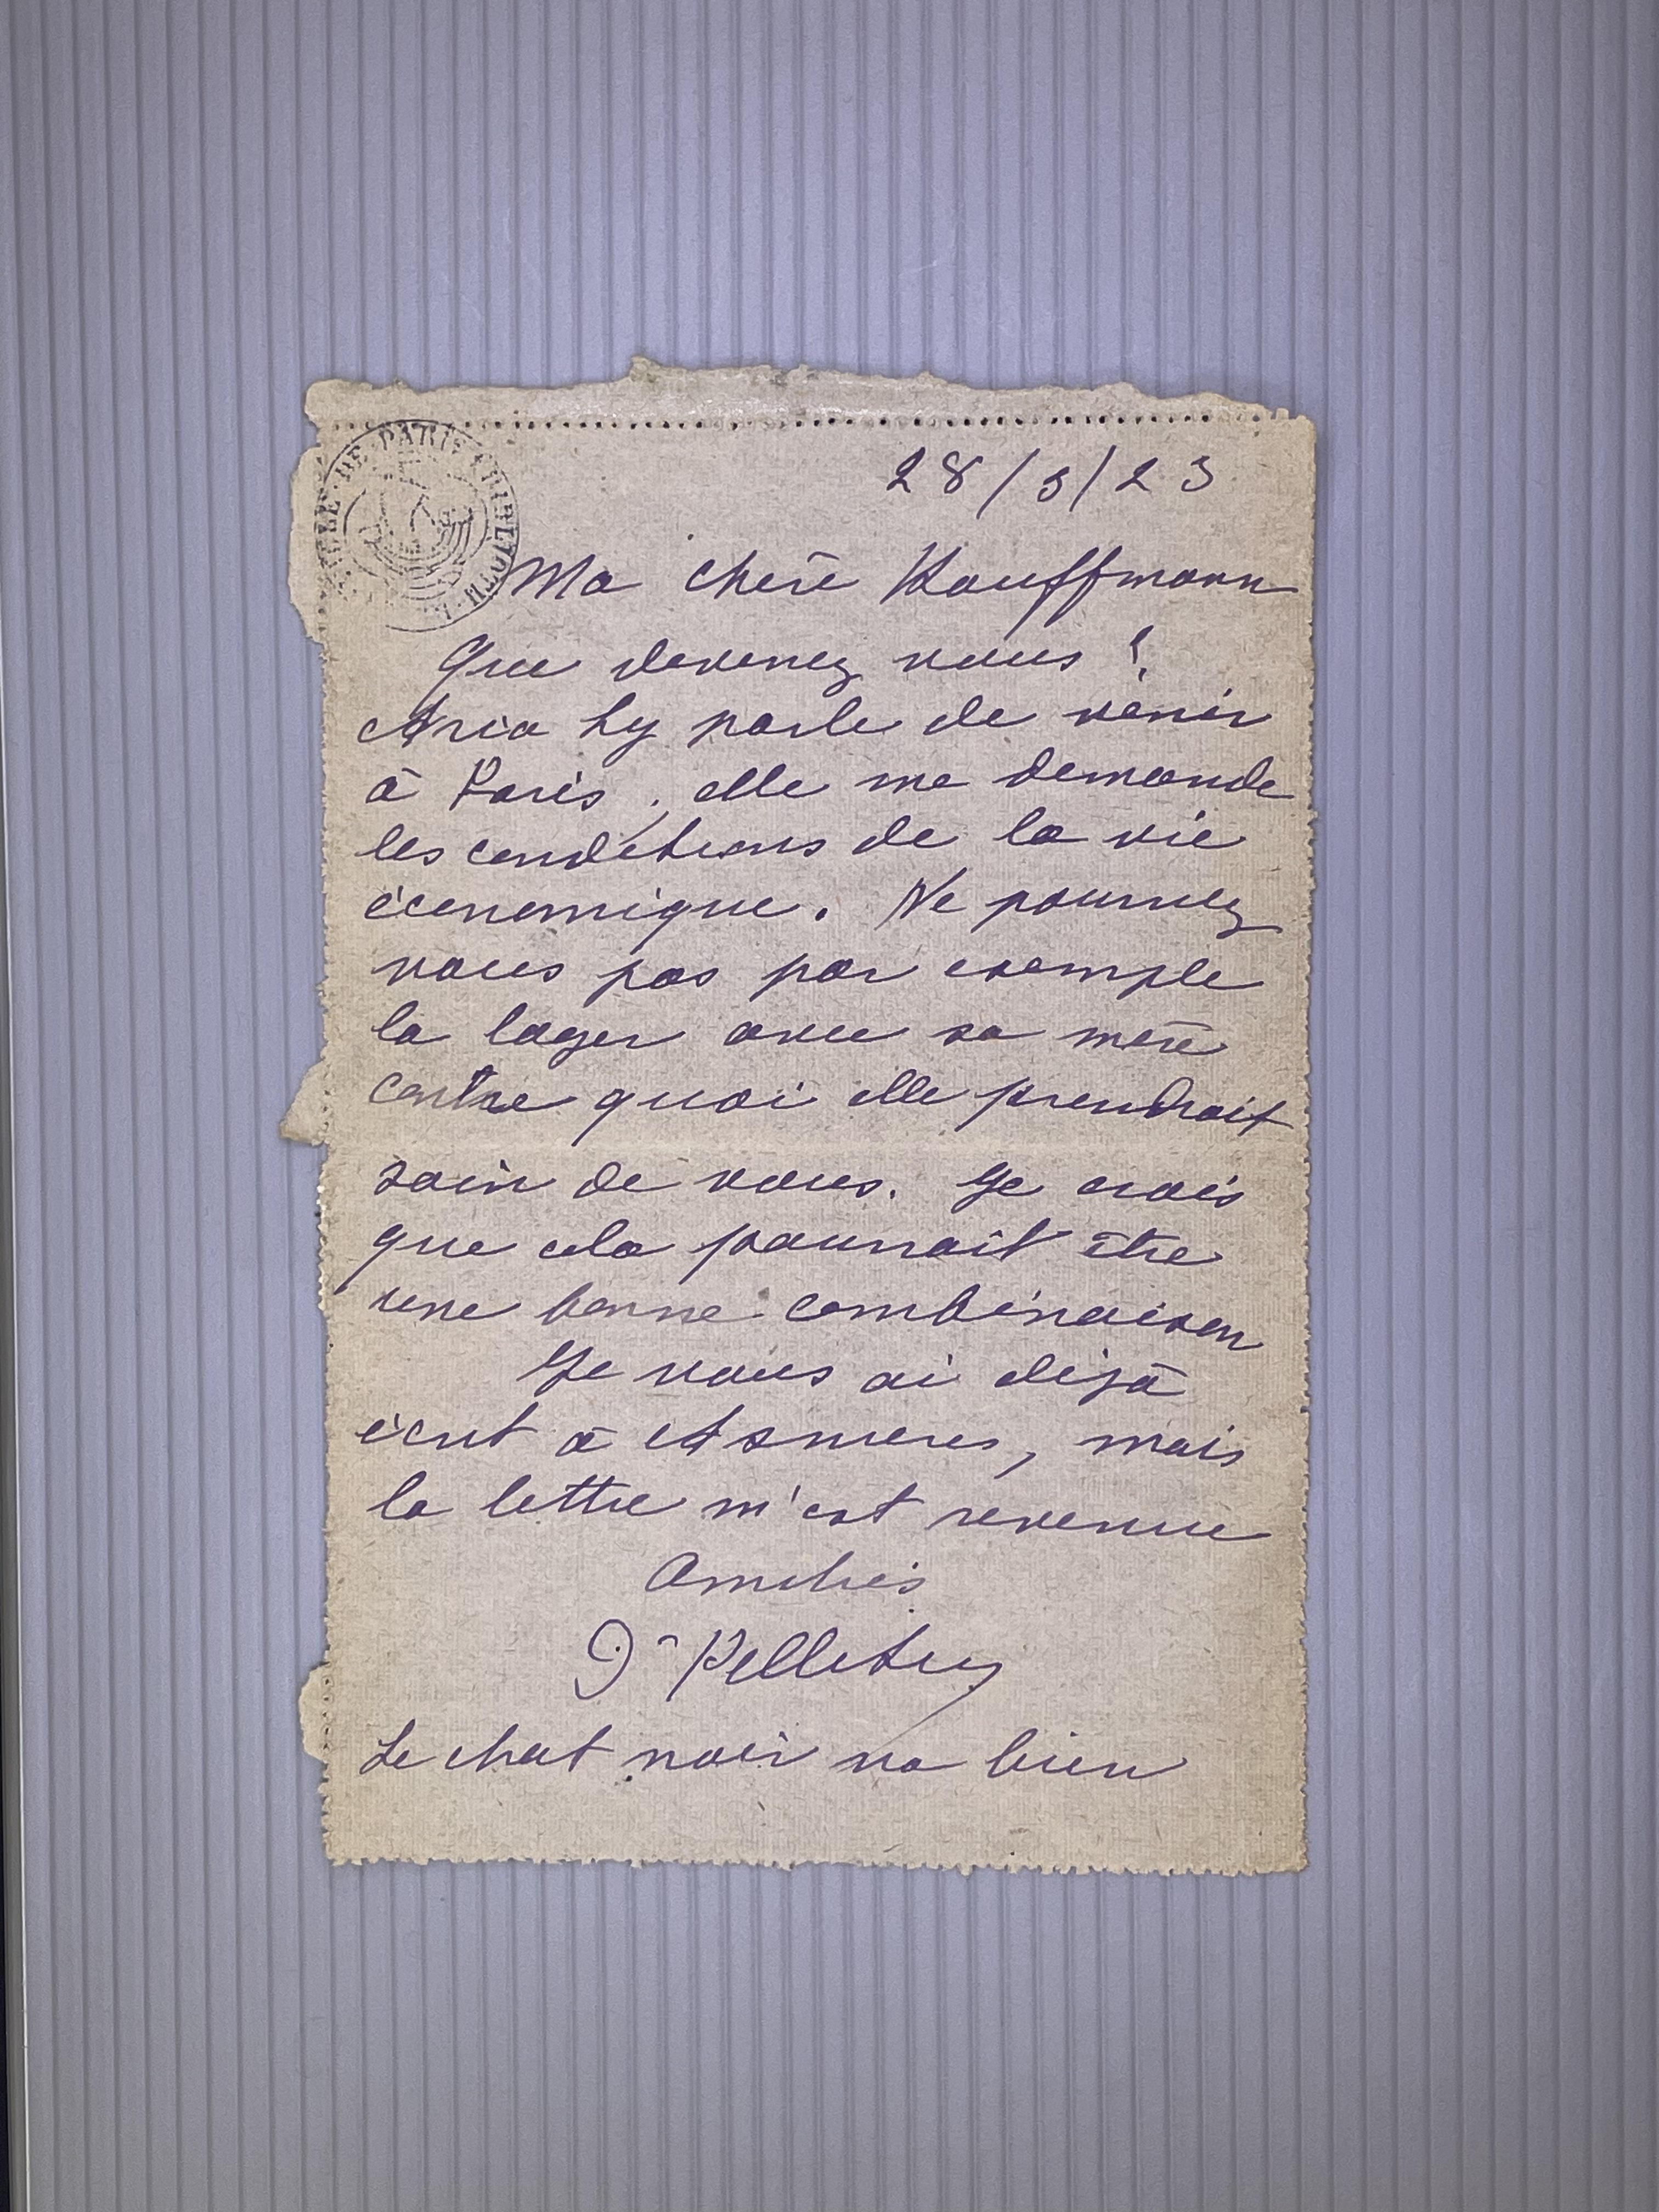 VILLE DE PARIS BIBLIOTH
28/3/23
Ma chère Kauffmann
Que devenez vous ?
Aria Ly parle de venir
à Paris, elle me demande
les conditions de la vie
économique. Ne pourriez
vous pas par exemple
la loger avec sa mère
contre quoi elle prendrait
soin de vous. Je crois
que cela pourrait être
une bonne combinaison
Je vous ai déjà
écrit à Asnières, mais
la lettre m'est revenue
Amitiés
Dr Pelletier
Le chat noir va bien